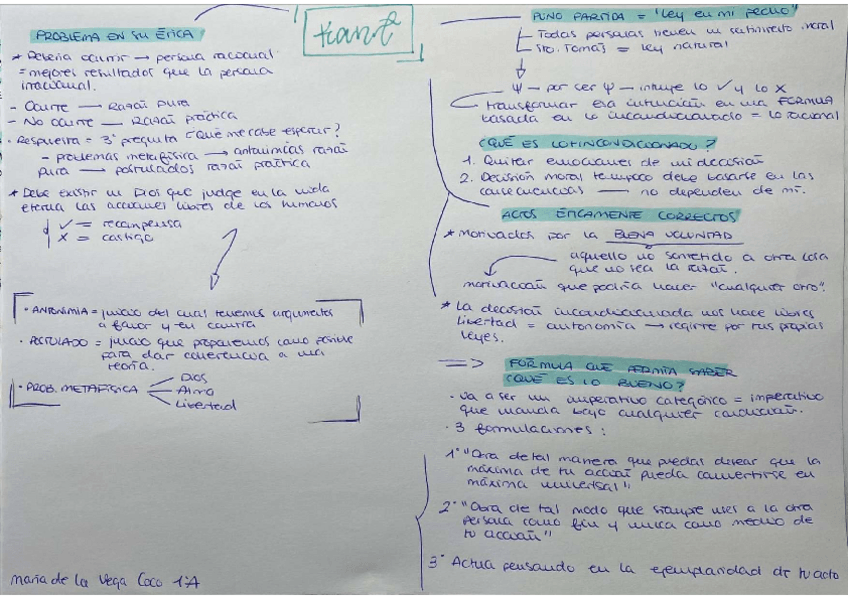 Kant
PROBLEMA EN SU ÉTICA
* Debería ocurrir → persona racional
= mejores resultados que la persona
irracional.
- Ocurre — Razón pura
- No ocurre — Razón práctica
· Respuesta = 3ª pregunta ¿Qué me cabe esperar?
- problemas metafísica → antinomias razón
pura → postulados razón práctica
* Debe existir un Dios que judge en la vida
eterna las acciones libres de los humanos
✓ = recompensa
X = castigo
· ANTONIMIA = juicio del cual tenemos argumentos
a favor y en contra
· POSTULADO = juicio que proponemos como posible
para dar coherencia a una
teoría.
· PROB. METAFÍSICA
Dios
Alma
Libertad
maría de la Vega Coco 1ºA
PUNO PARTIDA = "Ley en mi pecho"
Todas personas tienen un sentimiento moral
Sto. Tomás = ley natural
Ψ — por ser Ψ — intuye lo ✓ y lo X
transformar esa intuición en una FÓRMULA
basada en lo incondicionado = lo racional
¿QUÉ ES LO INCONDICIONADO?
1. Quitar emociones de mi decisión
2. Decisión moral tampoco debe basarse en las
consecuencias — no dependen de mí.
ACTOS ÉTICAMENTE CORRECTOS
* Motivados por la BUENA VOLUNTAD
aquello no sometido a otra cosa
que no sea la razón.
motivación que podría hacer "cualquier otro".
* La decisión incondicionada nos hace libres
libertad = autonomía → regirte por tus propias
leyes.
⇒ FÓRMULA QUE PERMITA SABER
¿QUÉ ES LO BUENO?
· Va a ser un imperativo categórico = imperativo
que manda bajo cualquier condición.
· 3 formulaciones:
1º "Obra de tal manera que puedas desear que la
máxima de tu acción pueda convertirse en
máxima universal"
2º "Obra de tal modo que siempre uses a la otra
persona como fin y nunca como medio de
tu acción"
3º Actua pensando en la ejemplaridad de tu acto